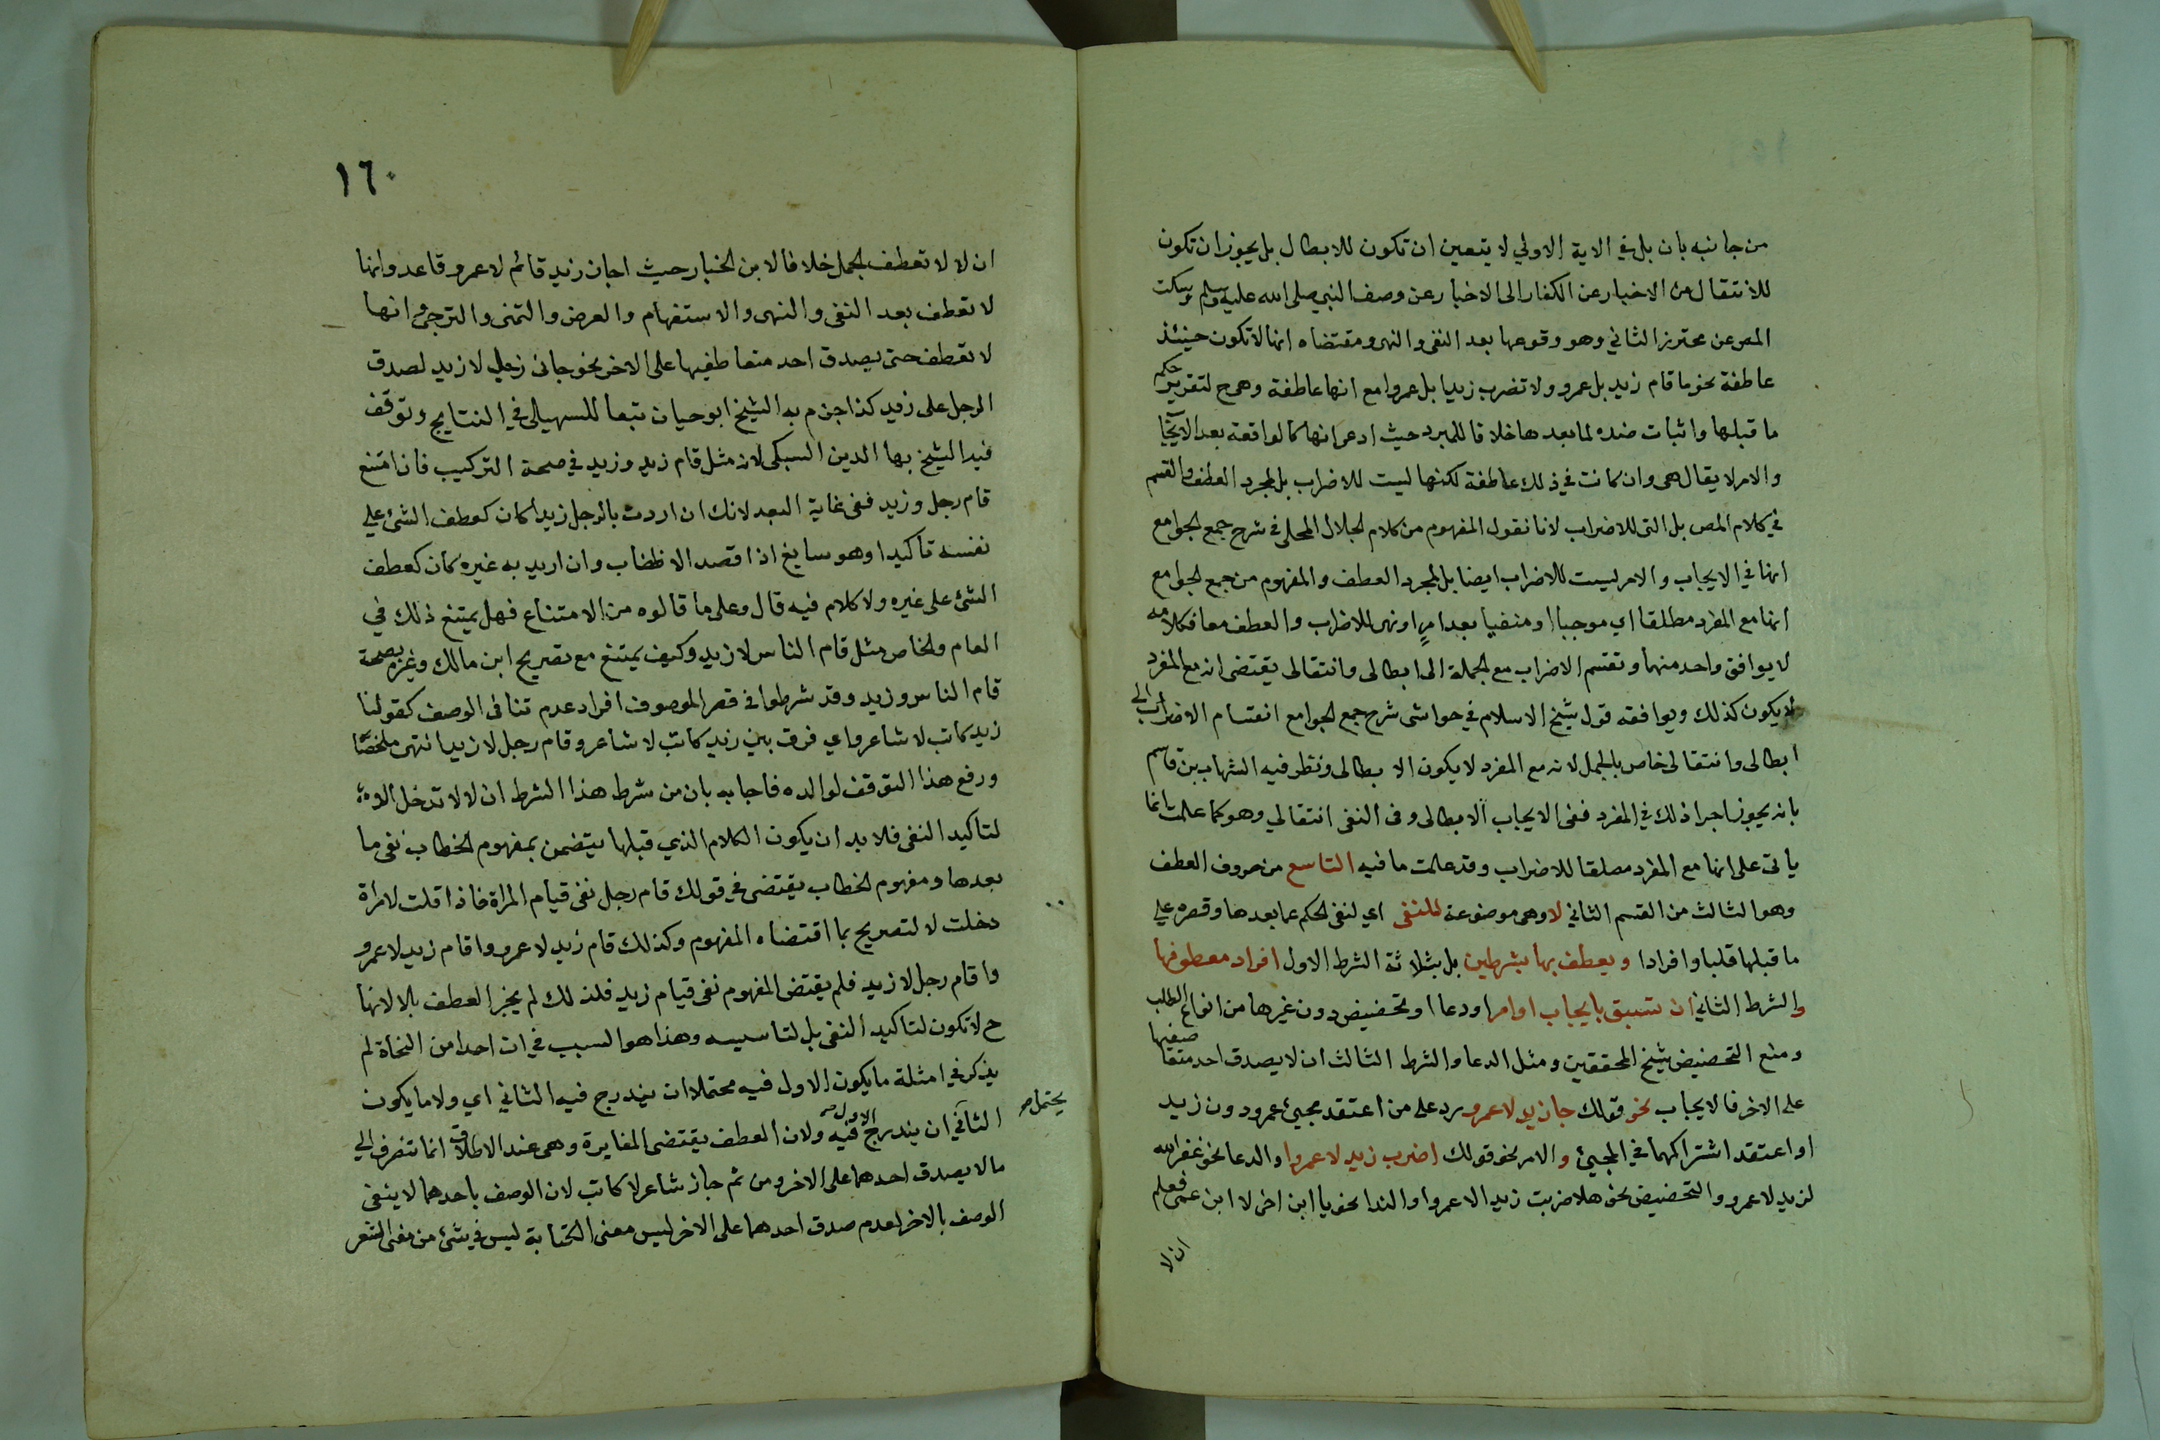 من جانبه بان بل في الاية الاولي لا يتعين ان تكون للابطال بل يجوز ان تكون
للانتقال من الاخبار عن الكفار الى الاخبار عن وصف النبي صلى الله عليه وسلم وسكت
المص عن محترز الثاني وهو وقوعها بعد النفى والنهى ومقتضاه انها لا تكون حينئذ
عاطفة نحو ما قام زيد بل عمرو ولا تضرب زيدا بل عمروا مع انها عاطفة وهى ح لتقرير حكم
ما قبلها واثبات ضده لما بعدها خلافا للمبرد حيث ادعى انها كالواقعة بعد الايجاب
والامر لا يقال هى وان كانت في ذلك عاطفة لكنها ليست للاضراب بل لمجرد العطف والقسم
في كلام المص بل التى للاضراب لانا نقول المفهوم من كلام الجلال المحلى في شرح جمع الجوامع
انها في الايجاب والامر ليست للاضراب ايضا بل لمجرد العطف والمفهوم من جمع الجوامع
انها مع المفرد مطلقا اي موجبا او منفيا بعد امر او نهى للاضراب والعطف معا فكلامه
لا يوافق واحد منهما وتقسم الاضراب مع الجملة الى ابطالى وانتقالى يقتضى انه مع المفرد
لا يكون كذلك ويوافقه قول شيخ الاسلام في حواشى شرح جمع الجوامع انقسام الاضراب الي
ابطالى وانتقالى خاص بالجمل لانه مع المفرد لا يكون الا ابطالى ونظر فيه الشهاب بن قاسم
بانه يجوز اجرا ذلك في المفرد ففى الايجاب الابطالى وفى النفى انتقالي وهو كما علمت انما
ياتى على انها مع المفرد مطلقا للاضراب وقد علمت ما فيه التاسع من حروف العطف
وهو الثالث من القسم الثاني لا وهى موضوعة للنفى اي لنفى الحكم عما بعدها وقصره علي
ما قبلها قلبا وافرادا ويعطف بها بشرطين بل بثلاثة الشرط الاول افراد معطوفها
والشرط الثاني ان تسبق بايجاب او امر او دعا او تحضيض دون غيرها من انواع الطلب
ومنع التحضيض شيخ المحققين ومثل الدعا والشرط الثالث ان لا يصدق احد متعاطفيها
على الاخر فالايجاب نحو قولك جا زيد لا عمرو رد على من اعتقد مجيئ عمرو دون زيد
او اعتقد اشتراكهما في المجيئ والامر نحو قولك اضرب زيد لا عمروا والدعا نحو غفر الله
لزيد لا عمرو والتحضيض نحو هلا ضربت زيدا لا عمروا والندا نحو يا ابن اخى لا ابن عمى فعلم
ان لا
١٦٠
ان لا لا تعطف الجمل خلافا لابن الخباز حيث اجاز زيد قائم لا عمرو قاعد وانها
لا تعطف بعد النفى والنهى والاستفهام والعرض والتمنى والترجى وانها
لا تعطف حتى يصدق احد متعاطفيها على الاخر نحو جانى رجل لا زيد لصدق
الرجل على زيد كذا جزم به الشيخ ابو حيان تبعا للسهيلى في النتايج وتوقف
فيه الشيخ بها الدين السبكى لانه مثل قام زيد وزيد في صحة التركيب فان امتنع
قام رجل وزيد ففى غاية البعد لانك ان اردت بالرجل زيدا كان كعطف الشئ علي
نفسه تاكيدا وهو سايغ اذا قصد الاطناب وان اريد به غيره كان كعطف
الشئ على غيره ولا كلام فيه قال وعلى ما قالوه من الامتناع فهل يمتنع ذلك في
العام والخاص مثل قام الناس لا زيد وكيف يمتنع مع تصريح ابن مالك وغيره بصحة
قام الناس وزيد وقد شرطوا في قصر الموصوف افراد عدم تنافى الوصف كقولنا
زيد كاتب لا شاعر واي فرق بين زيد كاتب لا شاعر وقام رجل لا زيد انتهى ملخصا
ورفع هذا التوقف لوالده فاجابه بان من شرط هذا الشرط ان لا لا تدخل الا
لتاكيد النفى فلا بد ان يكون الكلام الذي قبلها يتضمن بمفهوم الخطاب نفى ما
بعدها ومفهوم الخطاب يقتضى في قولك قام رجل نفى قيام المراة فاذا قلت لا مراة
دخلت لا لتصريح بما اقتضاه المفهوم وكذلك قام زيد لا عمرو واقام زيد لا عمرو
واقام رجل لا زيد فلم يقتض المفهوم نفى قيام زيد فلذلك لم يجز العطف بلا لانها
ح لا تكون لتاكيد النفى بل لتاسيسه وهذا هو السبب في ان احدا من النحاة لم
يذكر في امثلة ما يكون الاول فيه محتملا ان يندرج فيه الثاني اي ولا ما يكون
يحتمل
الثاني ان يندرج الاول فيه ولان العطف يقتضى المغايرة وهى عند الاطلاق انما تنصرف الي
ما لا يصدق احدهما على الاخر ومن ثم جاز شاعر لا كاتب لان الوصف باحدهما لا ينفى
الوصف بالاخر لعدم صدق احدهما على الاخر ليس معنى الكتابة ليس في شئ من معنى الشعر